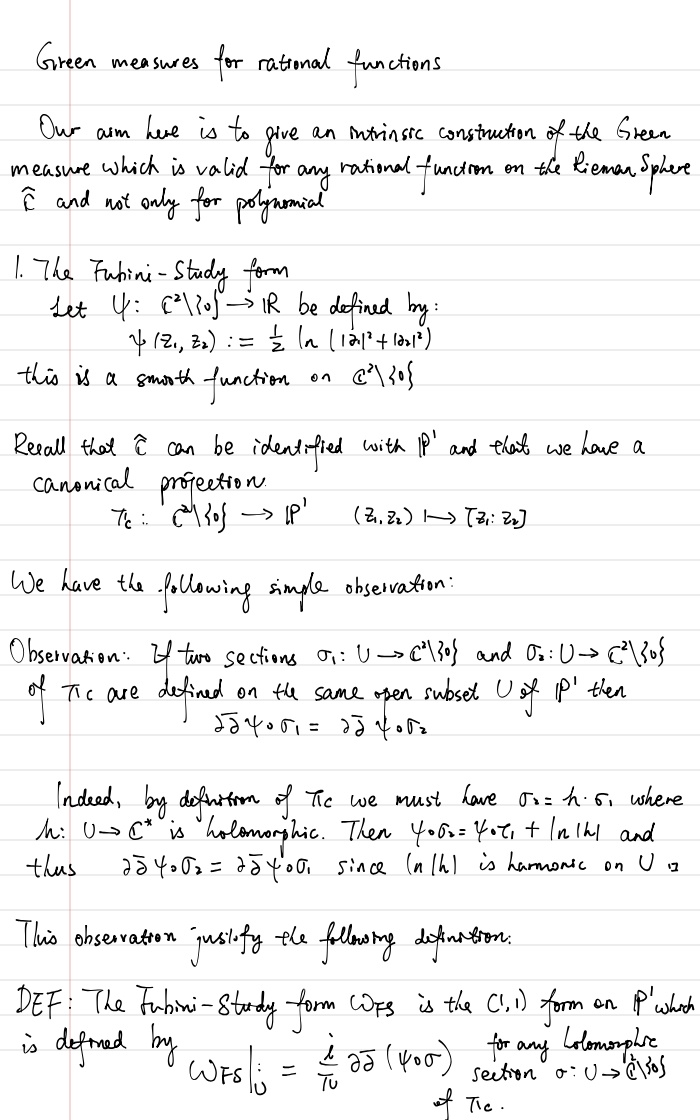 Green measures for rational functions
Our aim here is to give an intrinsic construction of the Green
measure which is valid for any rational function on the Rieman Sphere
Ĉ and not only for polynomial
1. The Fubini-Study form
Let Ψ: ℂ²\{0} → ℝ be defined by:
ψ(z₁, z₂) := ½ ln (|z₁|² + |z₂|²)
this is a smooth function on ℂ²\{0}
Recall that Ĉ can be identified with ℙ¹ and that we have a
canonical projection
π_c : ℂ²\{0} → ℙ¹ (z₁, z₂) ↦ [z₁: z₂]
We have the following simple observation:
Observation: If two sections σ₁: U → ℂ²\{0} and σ₂: U → ℂ²\{0}
of π_c are defined on the same open subset U of ℙ¹ then
∂∂̄ ψ∘σ₁ = ∂∂̄ ψ∘σ₂
Indeed, by definition of π_c we must have σ₂ = h·σ₁ where
h: U → ℂ* is holomorphic. Then ψ∘σ₂ = ψ∘σ₁ + ln|h| and
thus ∂∂̄ ψ∘σ₂ = ∂∂̄ ψ∘σ₁ since ln|h| is harmonic on U □
This observation justify the following definition:
DEF: The Fubini-Study form ω_FS is the (1,1) form on ℙ¹ which
is defined by ω_FS|_U = i/π ∂∂̄ (ψ∘σ) for any holomorphic
section σ: U → ℂ²\{0}
of π_c.